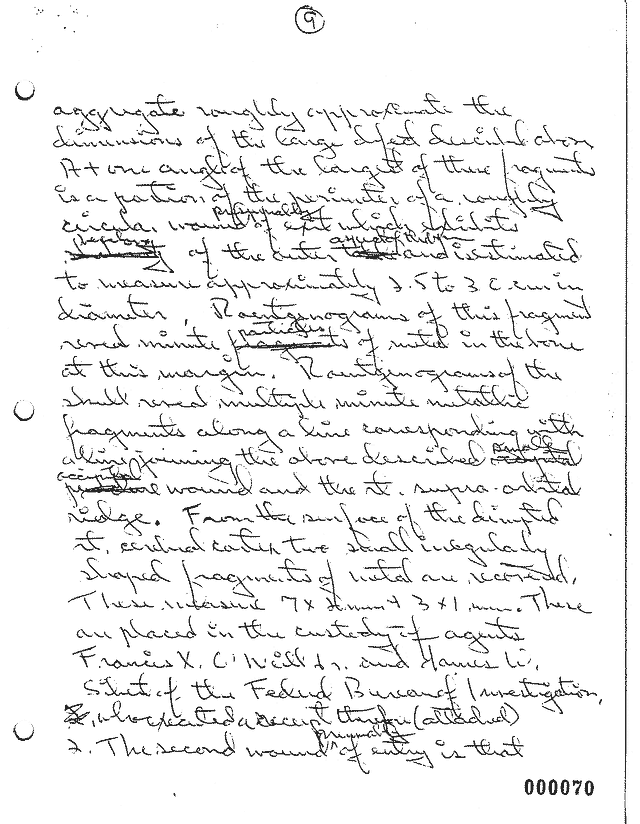 9
aggregate roughly approximate the
dimensions of the large defect described above
At one angle of the largest of these fragments
is a portion of the perimeter of a roughly
presumably
circular wound of exit which exhibits
beveling aspect of the bone
of the outer and is estimated
to measure approximately 2.5 to 3 cm in
diameter. Roentgenograms of this fragment
particles
reveal minute fragments of metal in the bone
at this margin. Roentgenograms of the
skull reveal multiple minute metallic
fragments along a line corresponding with
small
a line joining the above described occipital
occipital
wound and the rt. supra-orbital
ridge. From the surface of the disrupted
rt. cerebral cortex two small irregularly
shaped fragments of metal are recovered.
These measure 7 x 2 mm + 3 x 1 mm. These
are placed in the custody of agents
Francis X. O'Neill Jr. and James W.
Sibert of the Federal Bureau of Investigation,
who executed a receipt therefor (attached)
presumably
2. The second wound of entry is that
000070